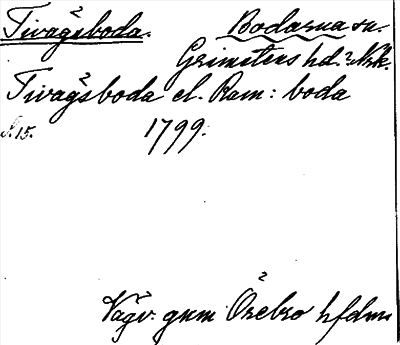 Tivägsboda. Bodarna sn.
Grimstens hd. Nrk.
Tivägsboda el. Ram: boda
S. 15. 1799.
Vägv. gnm Örebro hfdm